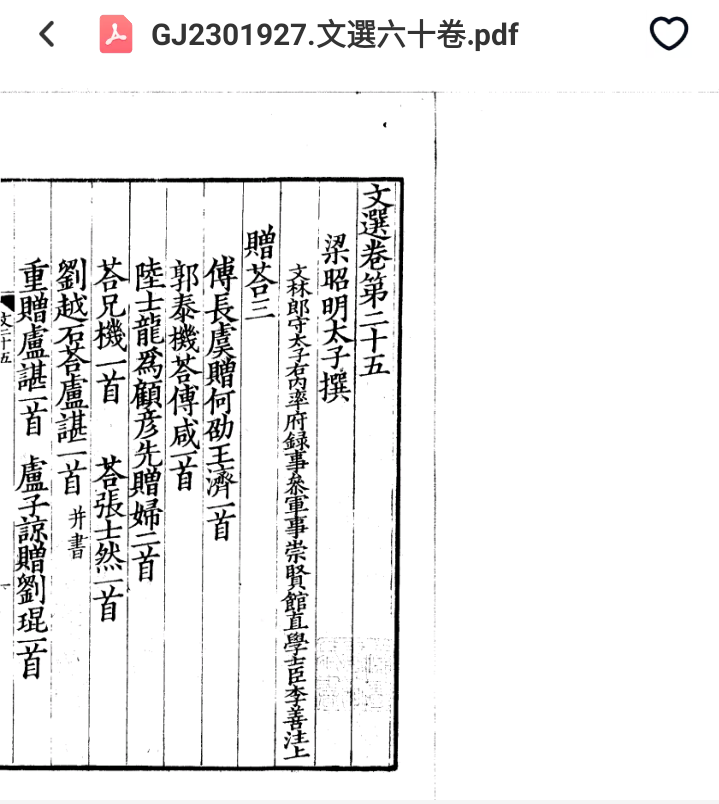 GJ2301927.文選六十卷.pdf
文選卷第二十五
梁昭明太子撰
文林郎守太子右內率府録事叅軍事崇賢館直學士臣李善注上
贈荅三
傅長虞贈何劭王濟一首
郭泰機荅傅咸一首
陸士龍爲顧彦先贈婦二首
荅兄機一首 荅張士然一首
劉越石荅盧諶一首 并書
重贈盧諶一首 盧子諒贈劉琨一首
文二十五
一